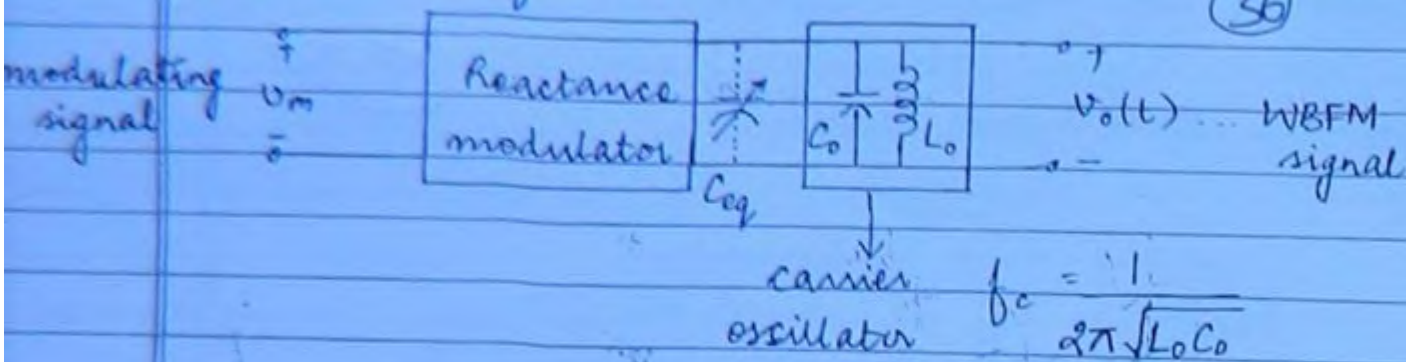 36
modulating signal
+
υm
-
Reactance modulator
Ceq
C₀
L₀
+
υ₀(t) ... WBFM signal
-
carrier oscillator
fc = 1 / 2π√L₀C₀